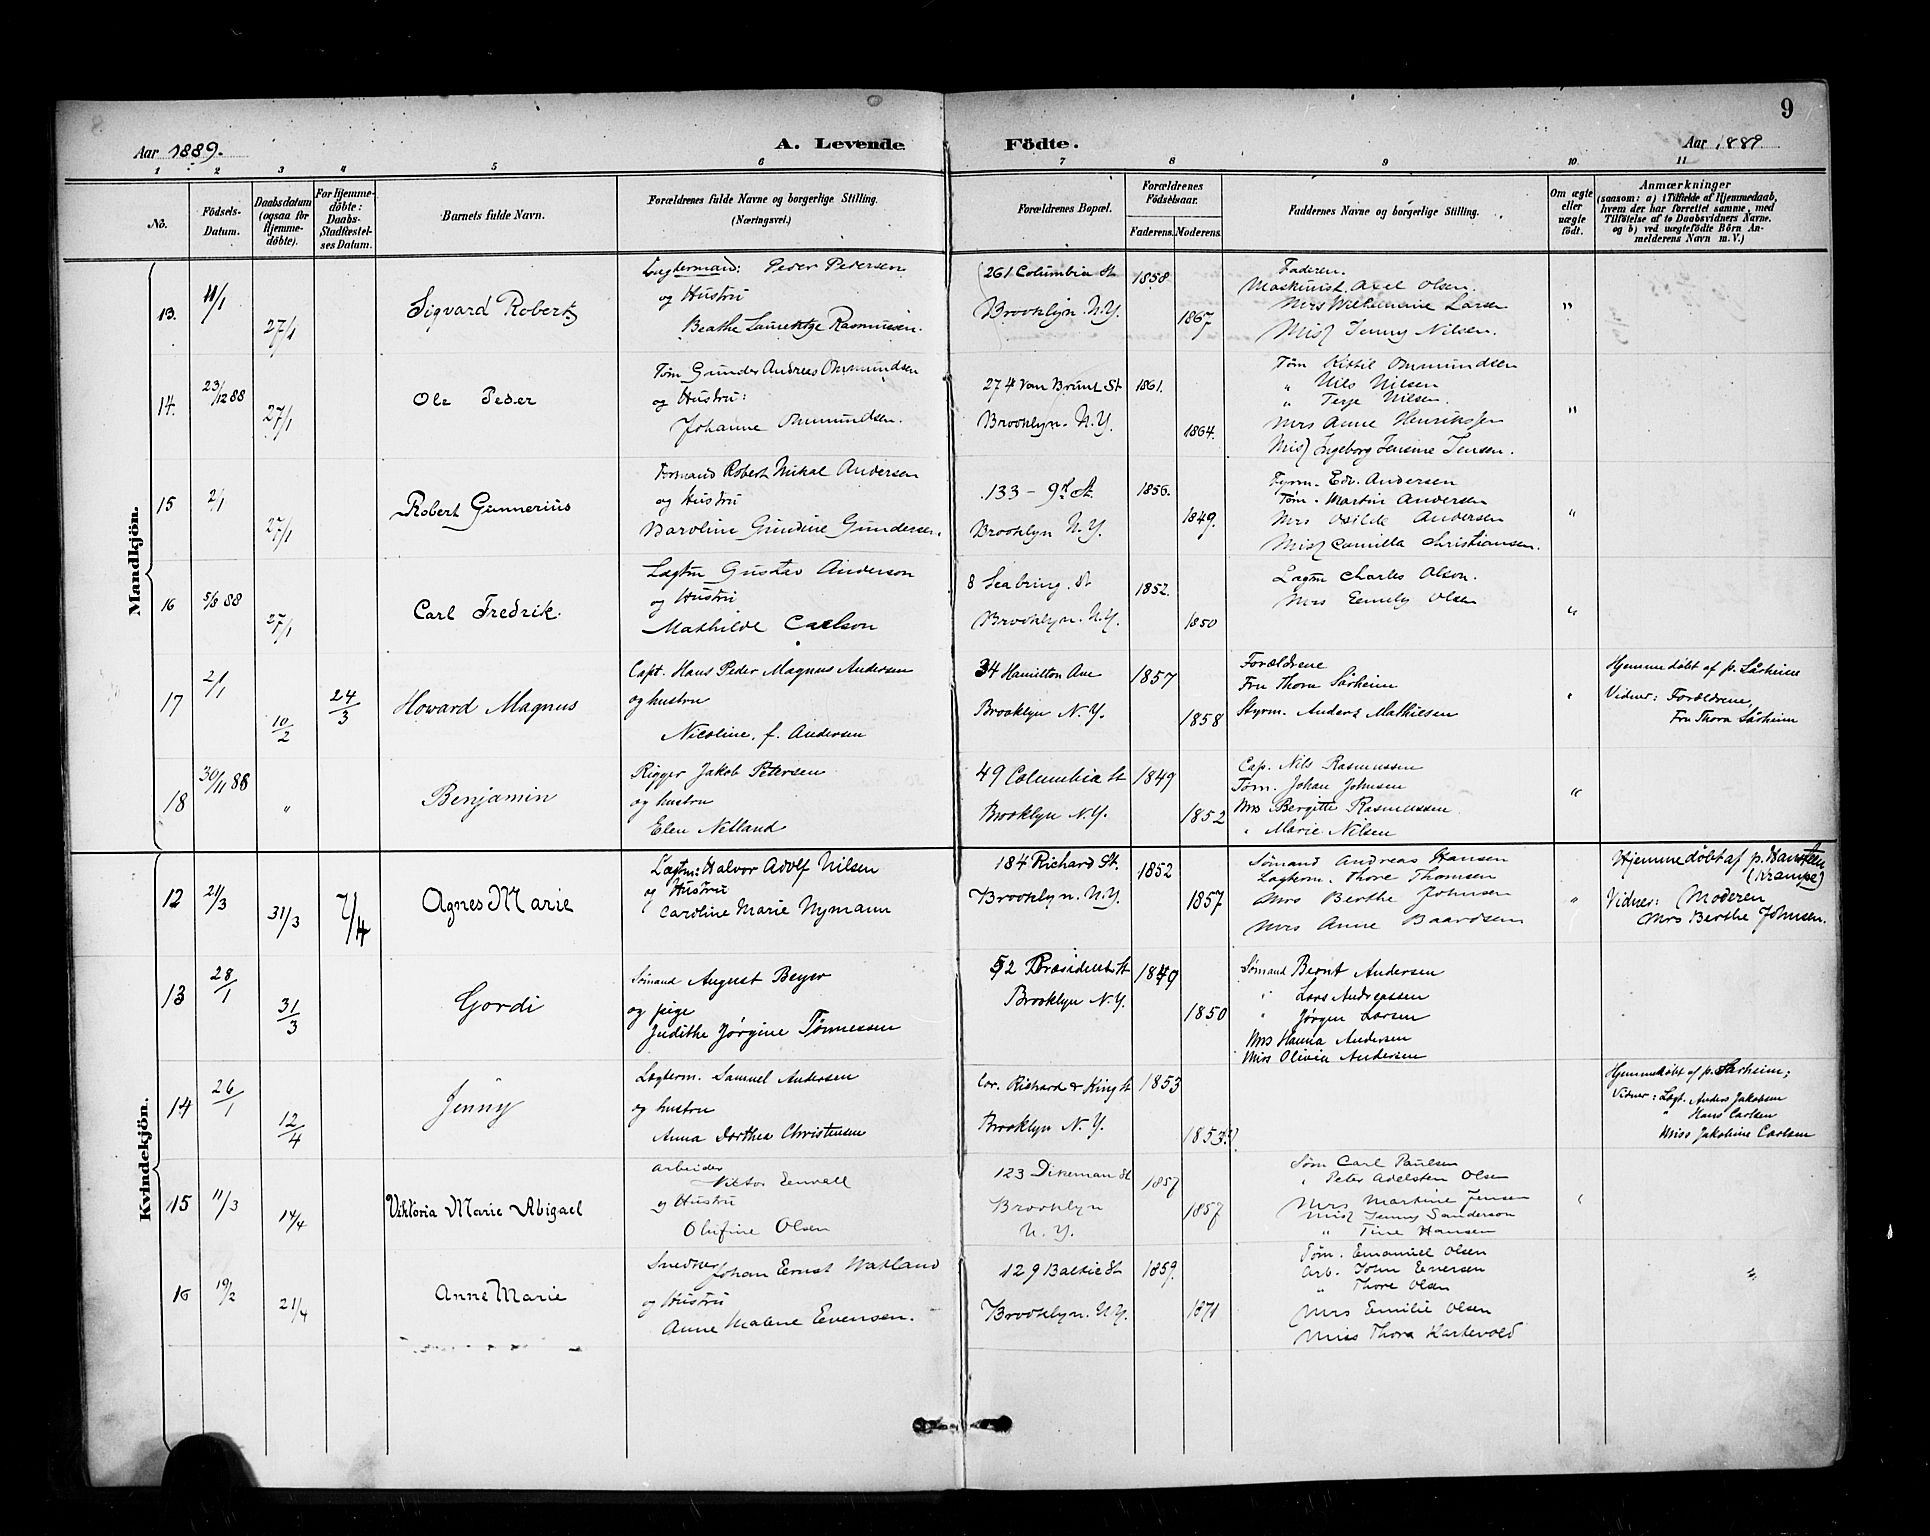 9
Aar 1889.
A. Levende Födte.
Aar 1889
1 2 3 4 5 6 7 8 9 10 11
No.
Födsels-Datum.
Daabsdatum (ogsaa for Hjemme-döbte).
For Hjemme-döbte: Daabs-Stadfæstel-ses Datum.
Barnets fulde Navn.
Forældrenes fulde Navne og borgerlige Stilling. (Næringsvei.)
Forældrenes Bopæl.
Forældrenes Födselsaar.
Faderens. Moderens.
Faddernes Navne og borgerlige Stilling.
Om ægte eller uægte födt.
Anmærkninger
(saasom: a) i Tilfælde af Hjemmedaab,
hvem der har forrettet samme, med
Tilföielse af to Daabsvidners Navne.
og b) ved uægtefödte Börn An-
melderens Navn m. V.)
Mandkjön.
13. 11/1 27/1 Sigvard Robert
Lægterman: Peder Pedersen
og Hustru
Beathe Laurentze Rasmussen.
261 Columbia St
Brooklyn. N.Y.
1858 1867
Faderen.
Maskinist Axel Olsen.
Mrs Wilhelmine Larsen
Miss Jenny Nilsen.
"
14. 23/12 88 27/1 Ole Peder
Tøm Gunder Andreas Ommundsen
og Hustru:
Johanne Ommundsen.
274 Van Brunt St
Brooklyn. N.Y.
1861. 1864.
Tøm Kittil Ommundsen
" Nils Nilsen
" Terje Nilsen.
Mrs Anne Henriksen
Miss Ingeborg Jensine Jensen.
"
15 2/1 27/1 Robert Gunnerius
Formand Robert Mikal Andersen
og Hustru
Karoline Gundine Gundersen.
133 - 9th St
Brooklyn N.Y.
1856. 1849
Fyrm. Edv. Andersen
Tøm. Martin Andersen
Mrs Osilde Andersen
Miss Camilla Christiansen.
"
16 5/8 88 27/1 Carl Fredrik
Lægtm Gustav Anderson
og Hustru
Mathilde Carlson
8 Seabring. St
Brooklyn. N.Y.
1852. 1850
Lægtm Charles Olson.
Mrs Emely Olsen
"
17 2/1 10/2 24/3 Howard Magnus
Capt. Hans Peder Magnus Andersen
og hustru
Nicoline, f. Andersen
34 Hamilton Ave
Brooklyn N.Y.
1857 1858
Forældrene
Fru Thora Sårheim
Styrm. Anders Mathisen
"
Hjemmedøbt af p. Sårheim
Vidner: Forældrene,
Fru Thora Sårheim
18 30/11 88 " Benjamin
Rigger Jakob Petersen
og hustru
Elen Netland
49 Columbia St
Brooklyn N.Y.
1849 1852
Cap. Nils Rasmussen
Tøm. Johan Johnsen
Mrs Bergitte Rasmussen
" Marie Nilsen
"
Kvindekjön.
12 21/3 31/3 7/4 Agnes Marie
Lægtm: Halvor Adolf Nilsen
og Hustru
Caroline Marie Nymann
184 Richard St.
Brooklyn. N.Y.
1852 1857
Sømand Andreas Hansen
Lægtem. Thore Thomsen
Mrs Berthe Johnsen
Mrs Anne Baardsen
"
Hjemmedøbt af p. Hansteen
(Krampe)
Vidner: Moderen
Mrs Berthe Johnsen.
13 28/1 31/3 Gordi
Sømand August Beyer
og pige
Judithe Jørgine Tønnessen
52 Præsident St
Brooklyn N.Y.
1849 1850
Sømand Bernt Andersen
" Lars Andreassen
" Jørgen Larsen
Mrs Hanna Andersen
Miss Olivia Andersen
14 26/1 12/4 Jenny
Lægterm. Samuel Andersen
og hustru
Anna Dorthea Christensen
Cor. Richard & King St
Brooklyn N.Y.
1853 1853?)
Hjemmedøbt af p. Sårheim;
Vidner: Lægt. Anders Jakobsen
" Hans Carlsen
Miss Jakobine Carlsen
15 11/3 14/4 Viktoria Marie Abigael
Arbeider
Viktor Enwall
og Hustru
Olufine Olsen
123 Dikeman St
Brooklyn
N.Y.
1857 1857
Tøm Carl Paulsen
" Peter Adelsten Olsen
Mrs Martine Jensen
Miss Jenny Sanderson
" Tine Hansen
16 19/2 21/4 Anne Marie
Snedker Johan Ernst Watland
og Hustru
Anne Malene Evensen.
129 Baltic St
Brooklyn. N.Y.
1859. 1871
Tøm. Emanuel Olsen
Arb. John Eversen
" Thore Olsen
Mrs Emilie Olsen
Miss Thora Hartevold